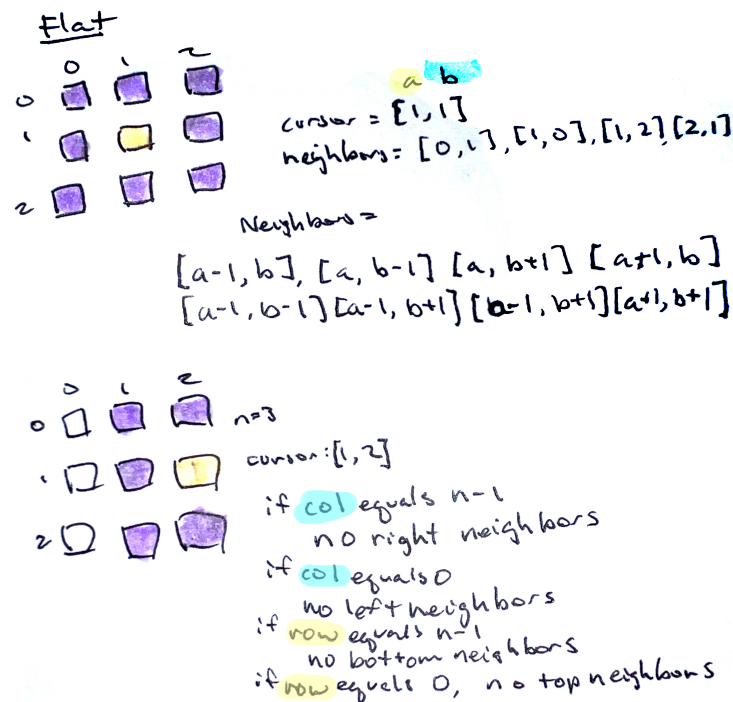 Flat
0 1 2
0
1
2
a b
cursor = [1,1]
neighbors = [0,1], [1,0], [1,2], [2,1]
Neighbors =
[a-1, b], [a, b-1] [a, b+1] [a+1, b]
[a-1, b-1] [a-1, b+1] [a-1, b+1] [a+1, b+1]
0 1 2
0
n=3
1
cursor: [1,2]
2
if col equals n-1
no right neighbors
if col equals 0
no left neighbors
if row equals n-1
no bottom neighbors
if row equals 0, no top neighbors